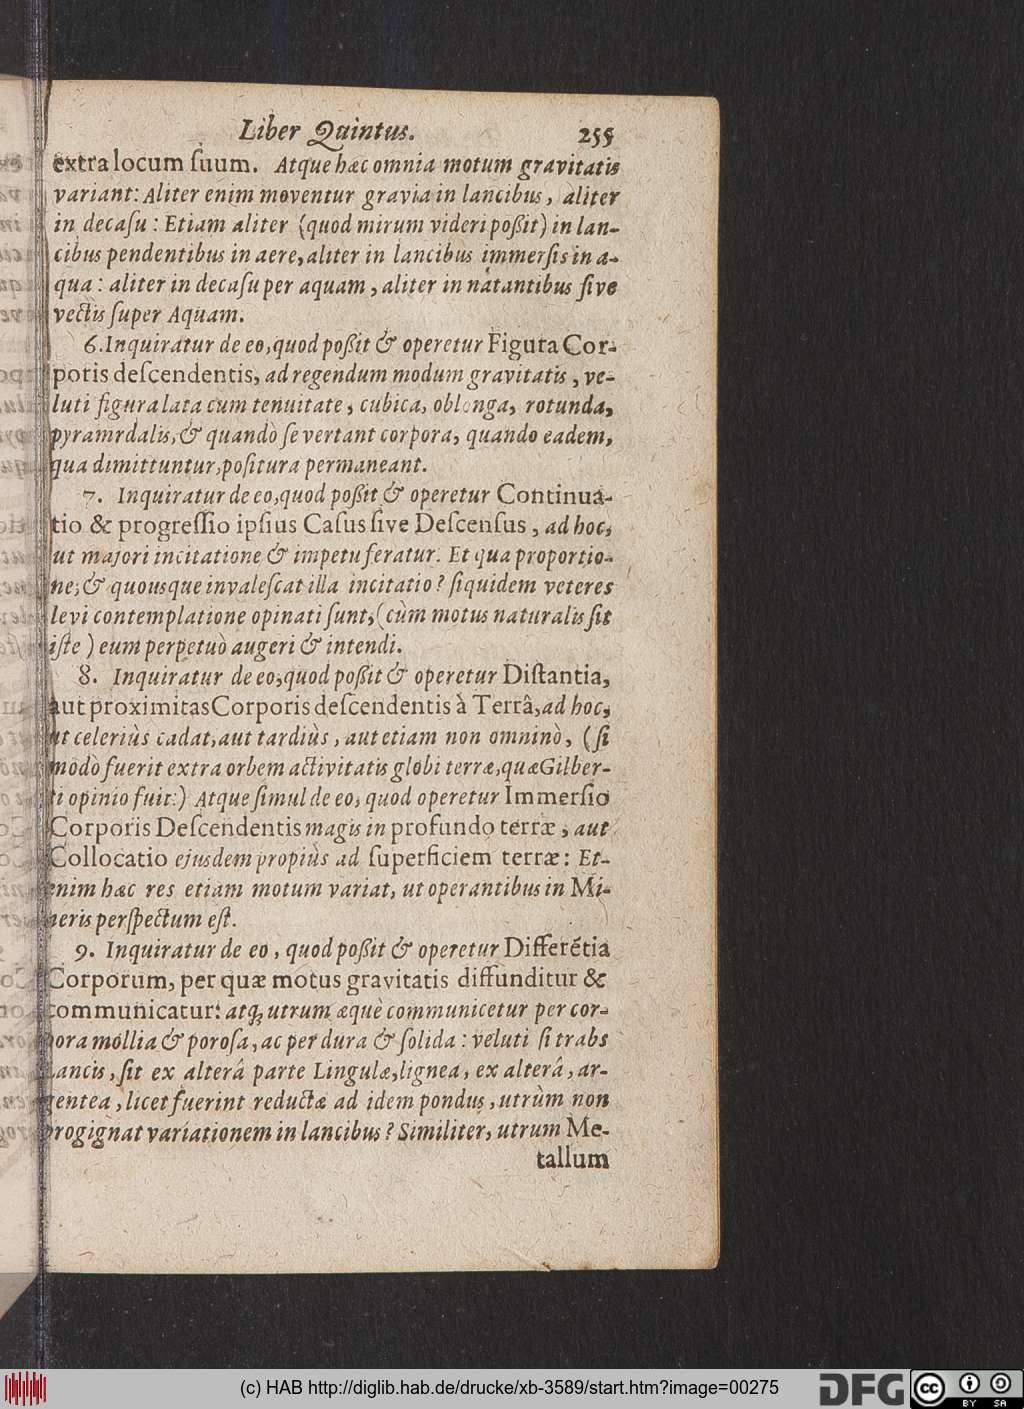 Liber Quintus. 255
extra locum ſuum. Atque hæc omnia motum gravitatis
variant: Aliter enim moventur gravia in lancibus, aliter
in decaſu: Etiam aliter (quod mirum videri poßit) in lan-
cibus pendentibus in aere, aliter in lancibus immerſis in a-
qua: aliter in decaſu per aquam, aliter in natantibus ſive
vectis ſuper Aquam.
6. Inquiratur de eo, quod poßit & operetur Figura Cor-
poris deſcendentis, ad regendum modum gravitatis, ve-
luti figura lata cum tenuitate, cubica, oblonga, rotunda,
pyramrdalis, & quandò ſe vertant corpora, quando eadem,
qua dimittuntur, poſitura permaneant.
7. Inquiratur de eo, quod poßit & operetur Continua-
tio & progreſſio ipſius Caſus ſive Deſcenſus, ad hoc,
ut majori incitatione & impetu feratur. Et qua proportio-
ne, & quousque invaleſcat illa incitatio? ſiquidem veteres
levi contemplatione opinati ſunt, (cùm motus naturalis ſit
iſte) eum perpetuò augeri & intendi.
8. Inquiratur de eo, quod poßit & operetur Diſtantia,
aut proximitas Corporis deſcendentis à Terrâ, ad hoc,
ut celeriùs cadat, aut tardiùs, aut etiam non omninò, (ſi
modò fuerit extra orbem activitatis globi terræ, quæ Gilber-
ti opinio fuit:) Atque ſimul de eo, quod operetur Immerſio
Corporis Deſcendentis magis in profundo terræ, aut
Collocatio ejusdem propiùs ad ſuperficiem terræ: Et-
enim hæc res etiam motum variat, ut operantibus in Mi-
neris perſpectum eſt.
9. Inquiratur de eo, quod poßit & operetur Differētia
Corporum, per quæ motus gravitatis diffunditur &
communicatur: atq; utrum æquè communicetur per cor-
pora mollia & poroſa, ac per dura & ſolida: veluti ſi trabs
Lancis, ſit ex alterâ parte Lingulæ, lignea, ex alterâ, ar-
gentea, licet fuerint reductæ ad idem pondus, utrùm non
progignat variationem in lancibus? Similiter, utrum Me-
tallum
(c) HAB http://diglib.hab.de/drucke/xb-3589/start.htm?image=00275
DFG
cc BY SA